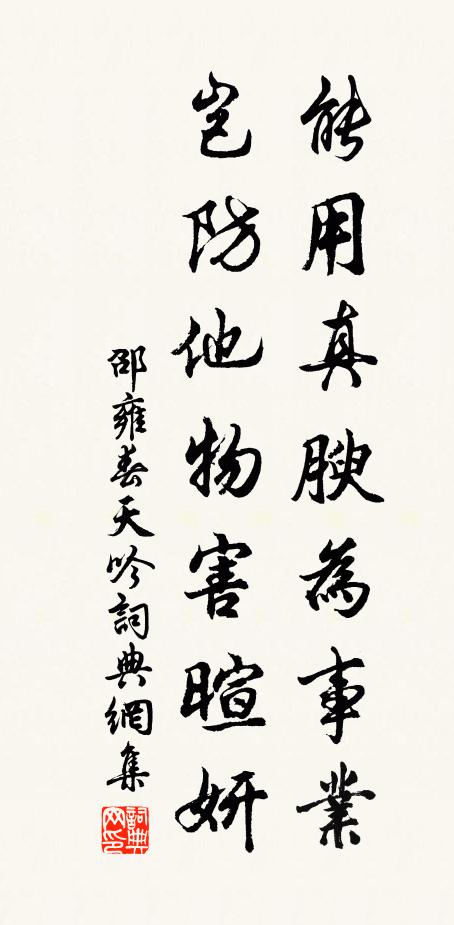 能用真腴為事業
豈防他物害暄妍
邵雍春天吟詞典網集
詞典网印